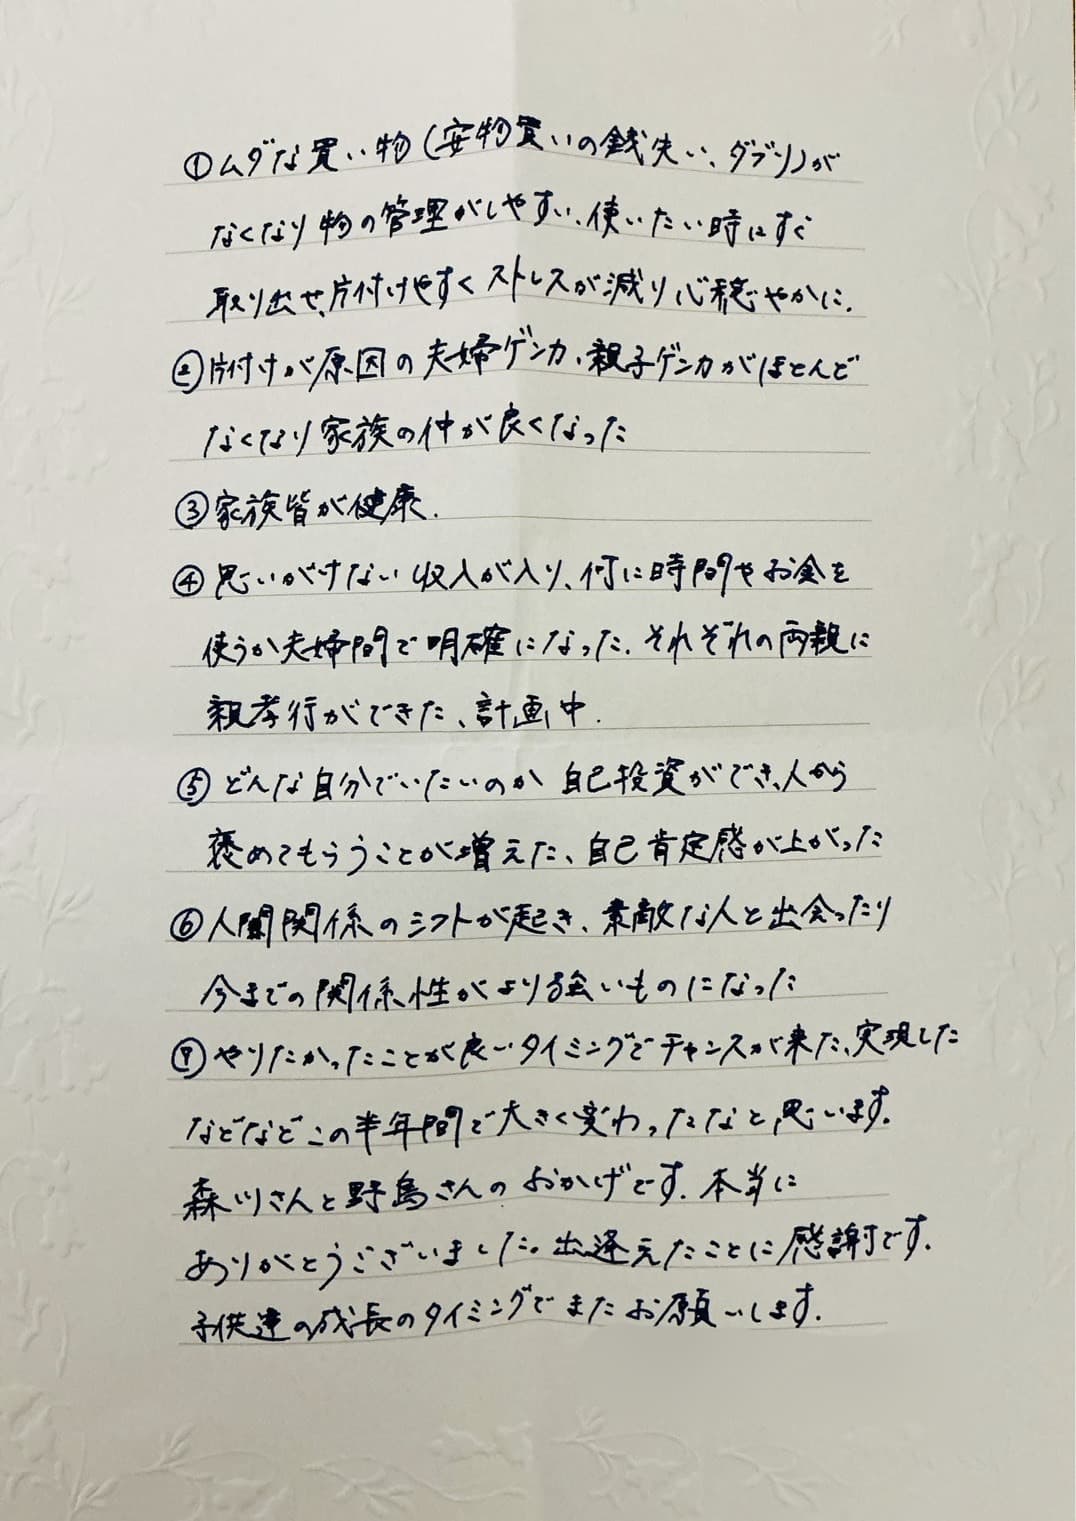 ①ムダな買い物(安物買いの銭失い、ダブリ)が
なくなり物の管理がしやすい、使いたい時にすぐ
取り出せ、片付けやすくストレスが減り心穏やかに.
②片付けが原因の夫婦ゲンカ、親子ゲンカがほとんど
なくなり家族の仲が良くなった
③家族皆が健康.
④思いがけない収入が入り、何に時間やお金を
使うか夫婦間で明確になった.それぞれの両親に
親孝行ができた、計画中.
⑤どんな自分でいたいのか 自己投資ができ、人から
褒めてもらうことが増えた、自己肯定感が上がった
⑥人間関係のシフトが起き、素敵な人と出会ったり
今までの関係性がより強いものになった
⑦やりたかったことが良いタイミングでチャンスが来た、実現した
などなどこの半年間で大きく変わったなと思います.
森川さんと野島さんのおかげです.本当に
ありがとうございました。出逢えたことに感謝です.
子供達の成長のタイミングでまたお願いします.